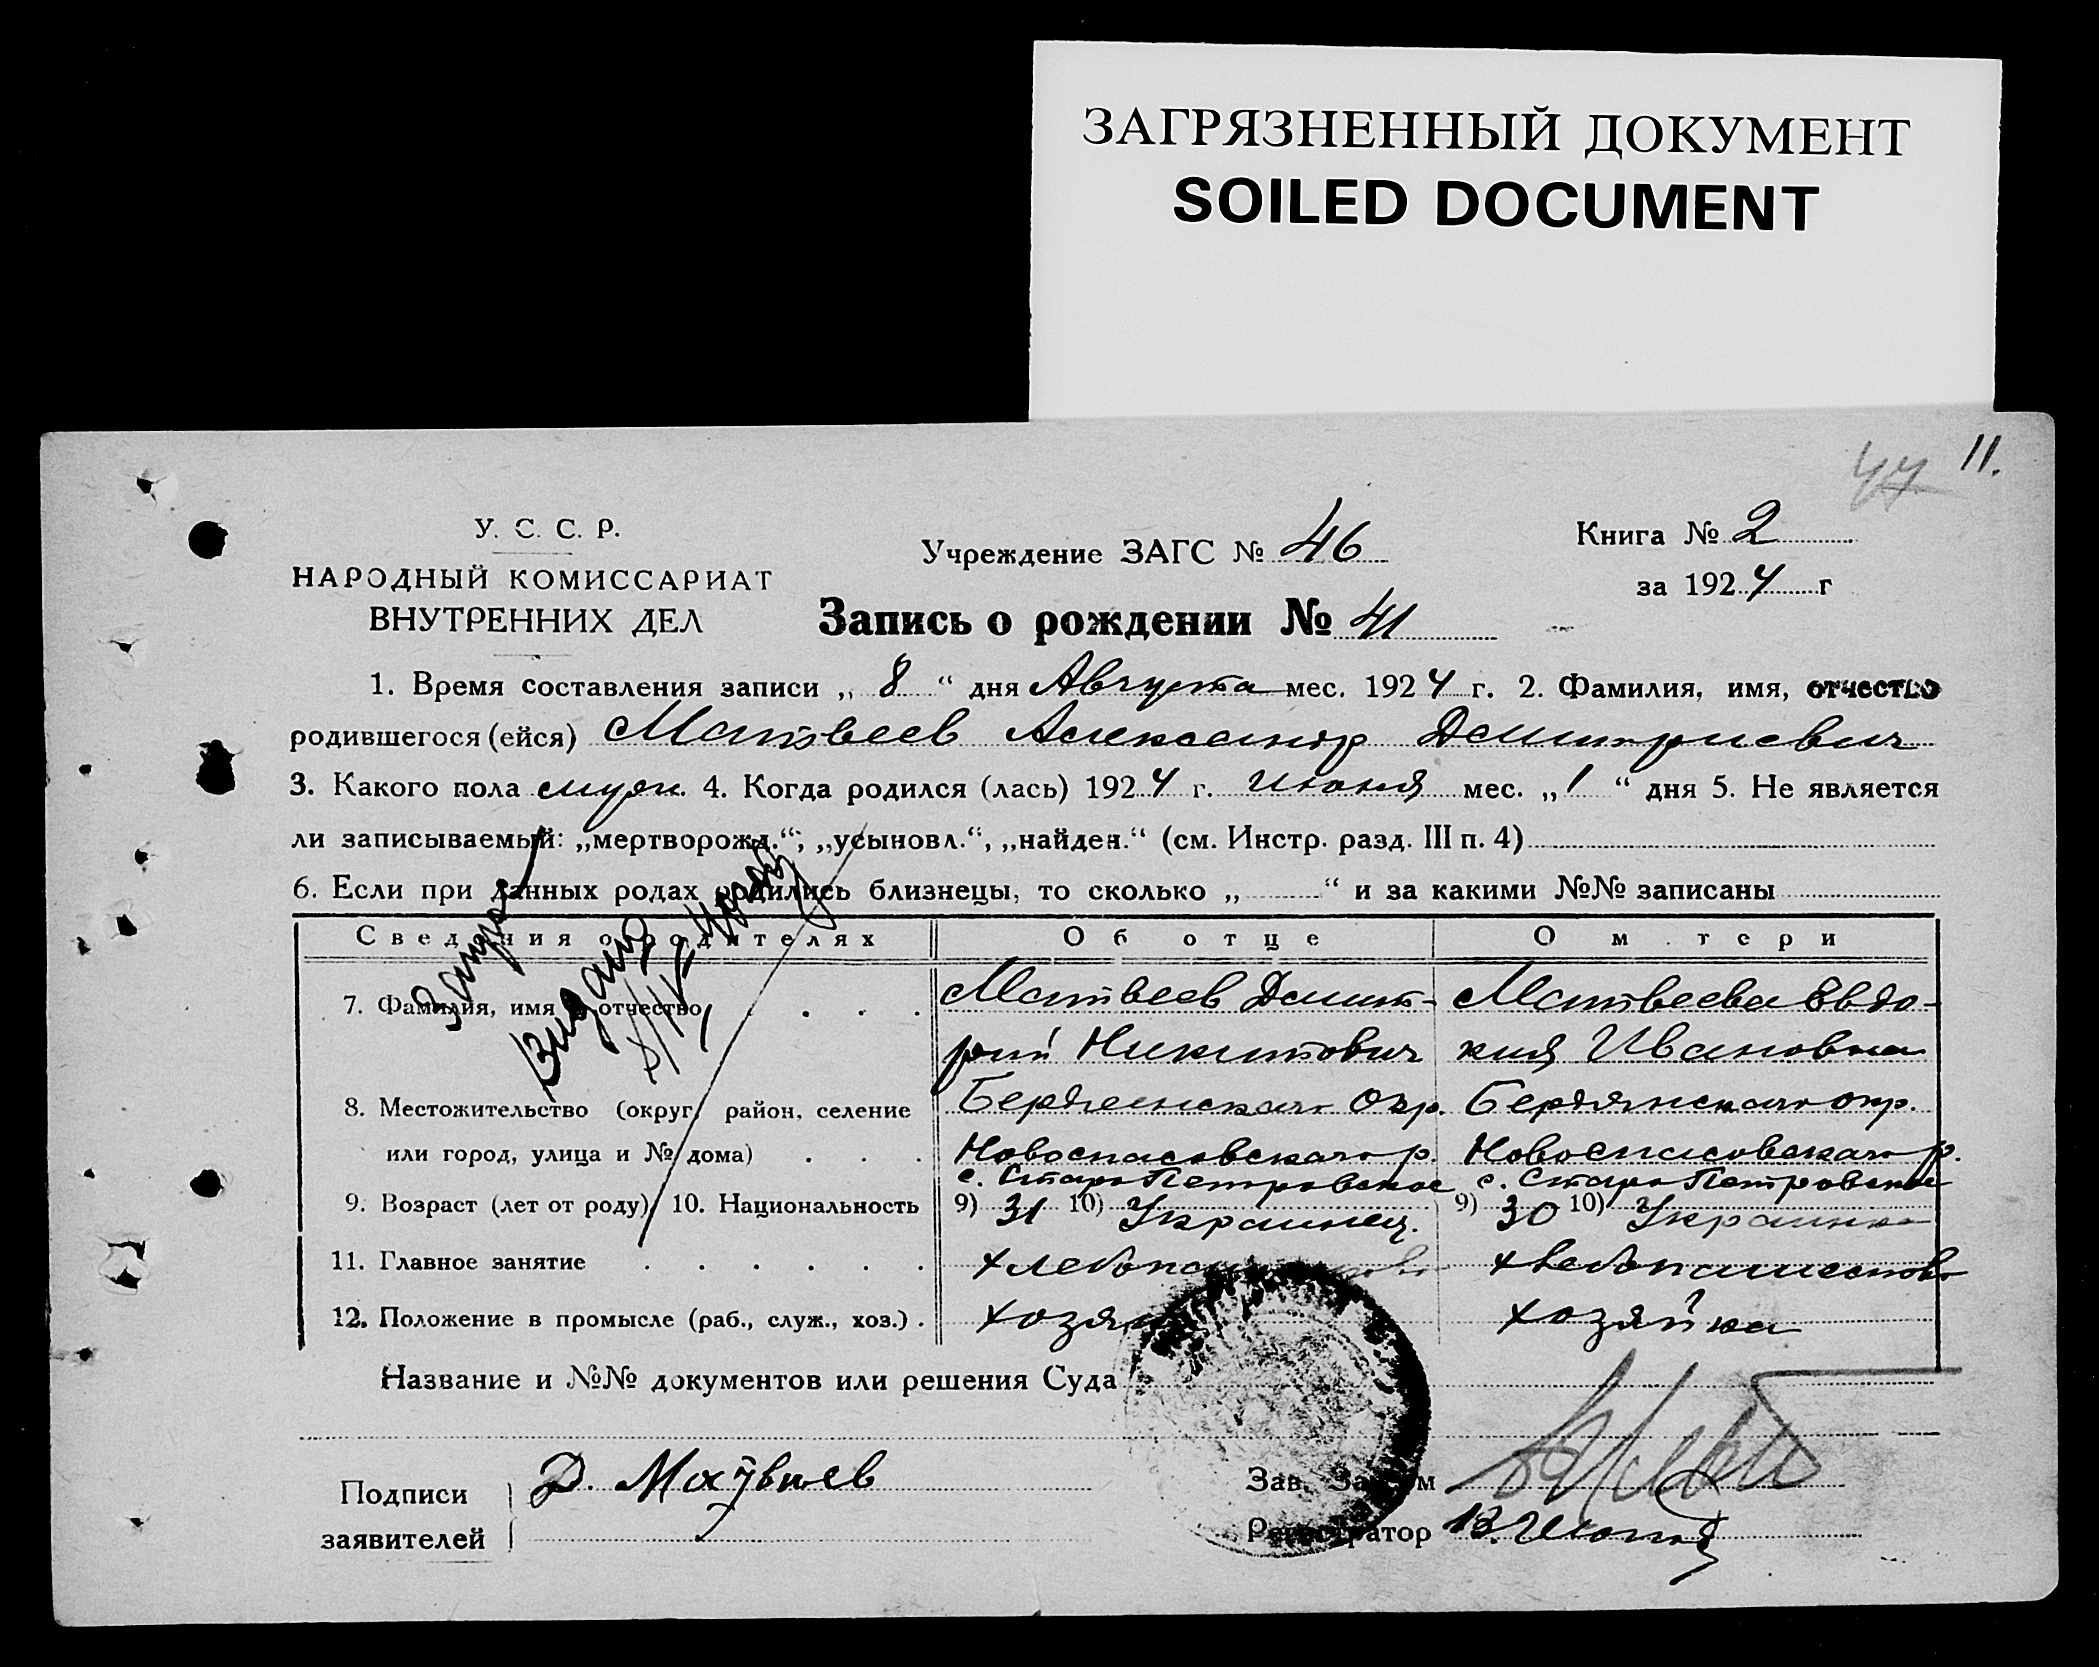 ЗАГРЯЗНЕННЫЙ ДОКУМЕНТ
SOILED DOCUMENT
47 11.
У. С. С. Р.
НАРОДНЫЙ КОМИССАРИАТ
ВНУТРЕННИХ ДЕЛ
Учреждение ЗАГС № 46
Книга № 2
за 1924 г
Запись о рождении № 41
1. Время составления записи „ 8 “ дня Августа мес. 1924 г. 2. Фамилия, имя, отчество
родившегося (ейся) Матвеев Александр Дмитриевич
3. Какого пола муж. 4. Когда родился (лась) 1924 г. Июня мес. „ 1 “ дня 5. Не является
ли записываемый: „мертворожд.“; „усыновл.“, „найден.“ (см. Инстр. разд. III п. 4)
6. Если при данных родах родились близнецы, то сколько „ “ и за какими №№ записаны
Сведения о родителях Об отце О матери
7. Фамилия, имя и отчество Матвеев Дмит- Матвеева Евдо-
рий Никитович кия Ивановна
8. Местожительство (округ, район, селение Бердянскаго Окр. Бердянскаго окр.
или город, улица и № дома) Новоспасовскаго р. Новоспасовскаго р.
с. Старо Петровское с. Старо Петровское
9. Возраст (лет от роду) 10. Национальность 9) 31 10) Украинец. 9) 30 10) Украинка
11. Главное занятие хлебопашество хлебопашество
12. Положение в промысле (раб., служ., хоз.) хозяин хозяйка
Название и №№ документов или решения Суда
Подписи
заявителей
Д. Матвиев
Зав. Загсом
Регистратор